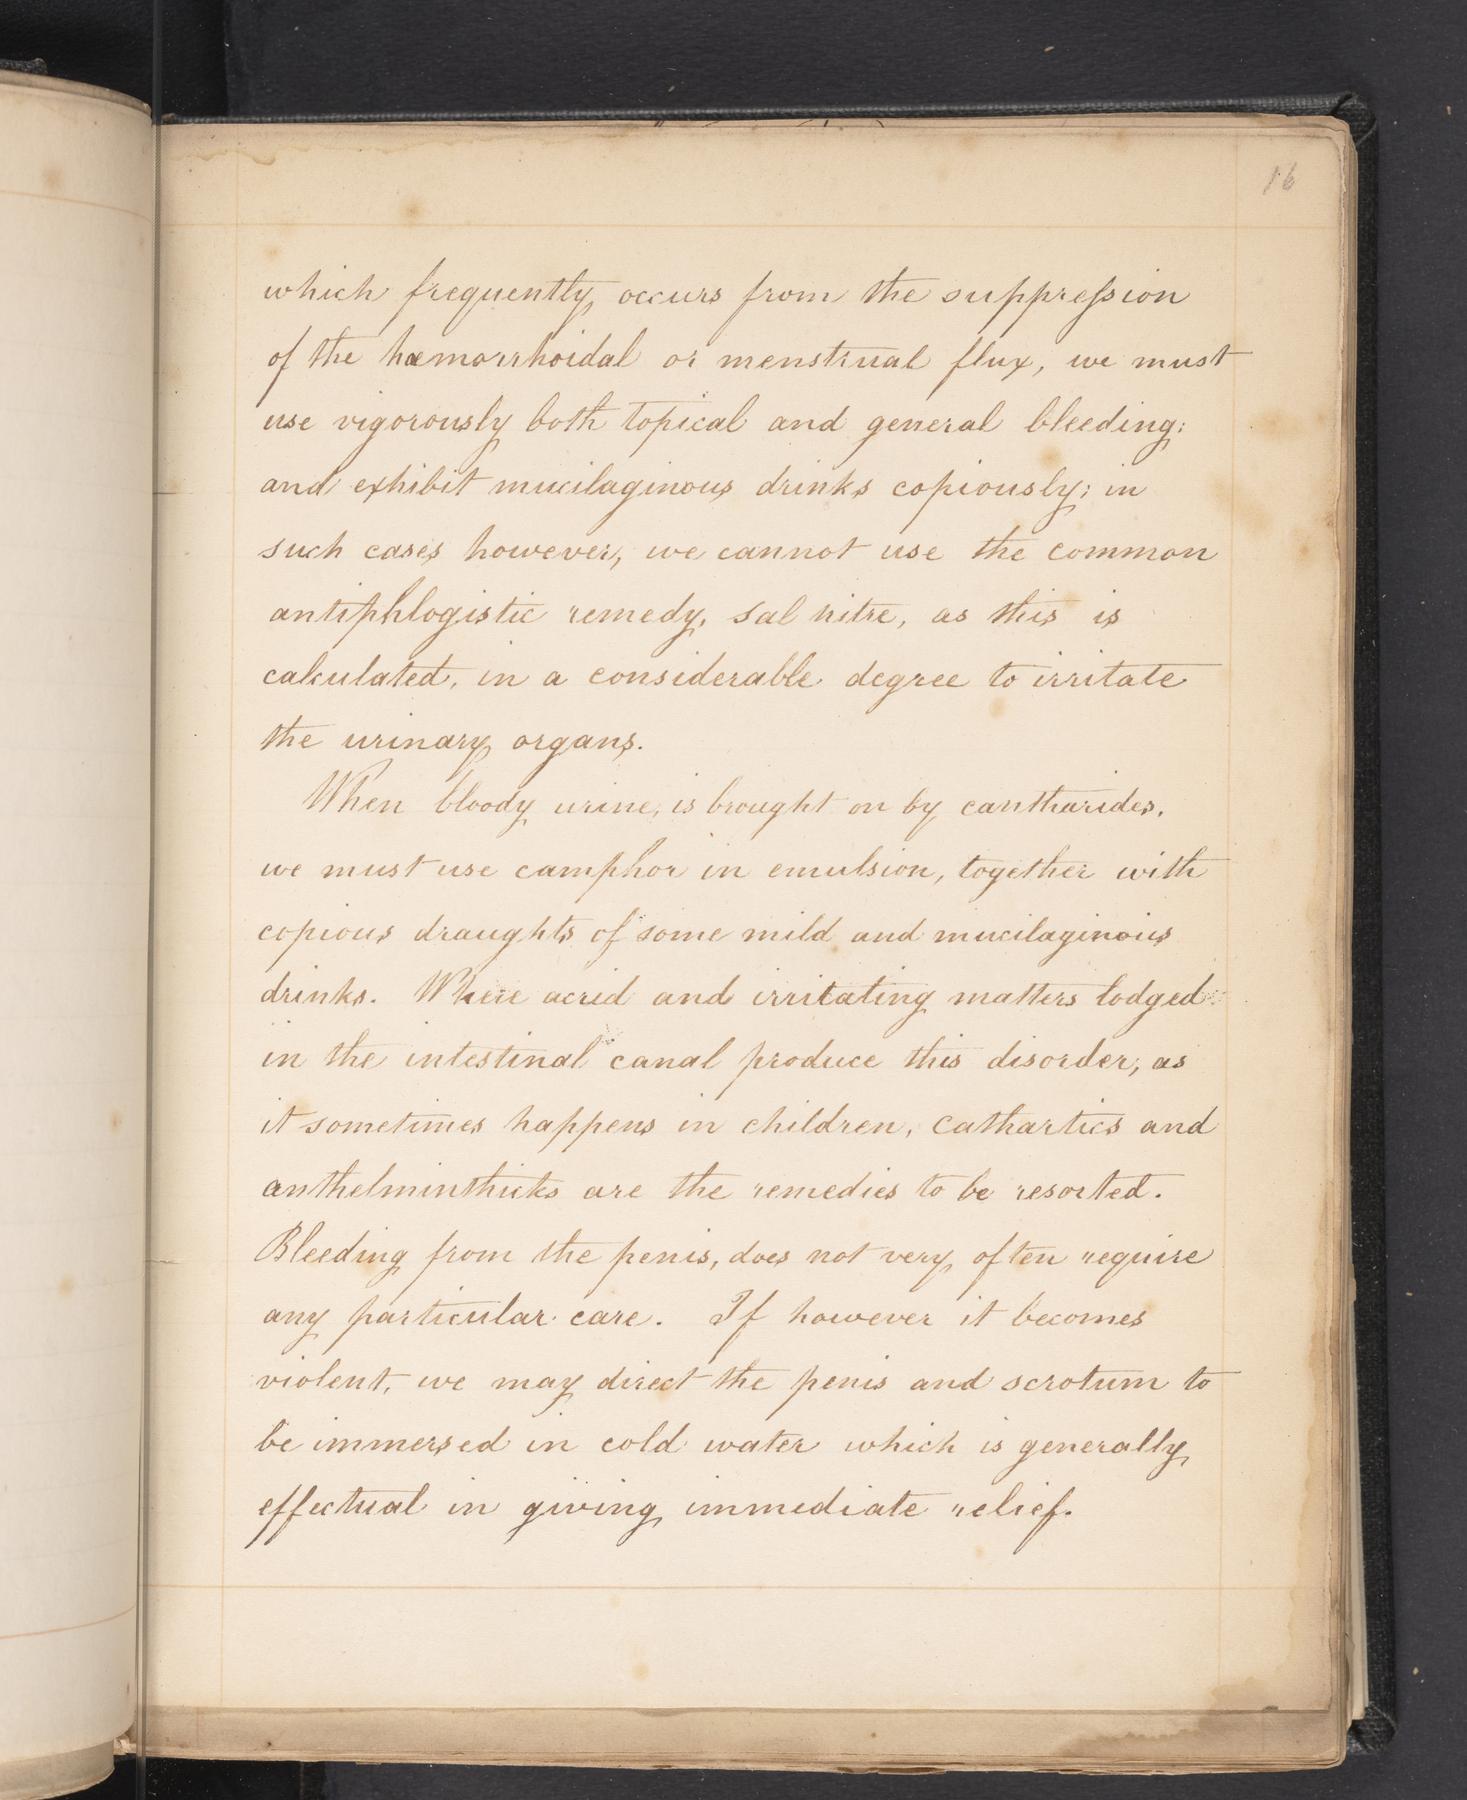 16
which frequently occurs from the suppreſsion
of the hæmorrhoidal or menstrual flux, we must
use vigorously both topical and general bleeding;
and exhibit mucilaginous drinks copiously; in
such cases however, we cannot use the common
antiphlogistic remedy, sal nitre, as this is
calculated, in a considerable degree to irritate
the urinary organs.
When bloody urine, is brought on by cantharides,
we must use camphor in emulsion, together with
copious draughts of some mild and mucilaginous
drinks. Where acrid and irritating matters lodged
in the intestinal canal produce this disorder, as
it sometimes happens in children, cathartics and
anthelminthicks are the remedies to be resorted.
Bleeding from the penis, does not very often require
any particular care. If however it becomes
violent, we may direct the penis and scrotum to
be immersed in cold water which is generally
effectual in giving immediate relief.